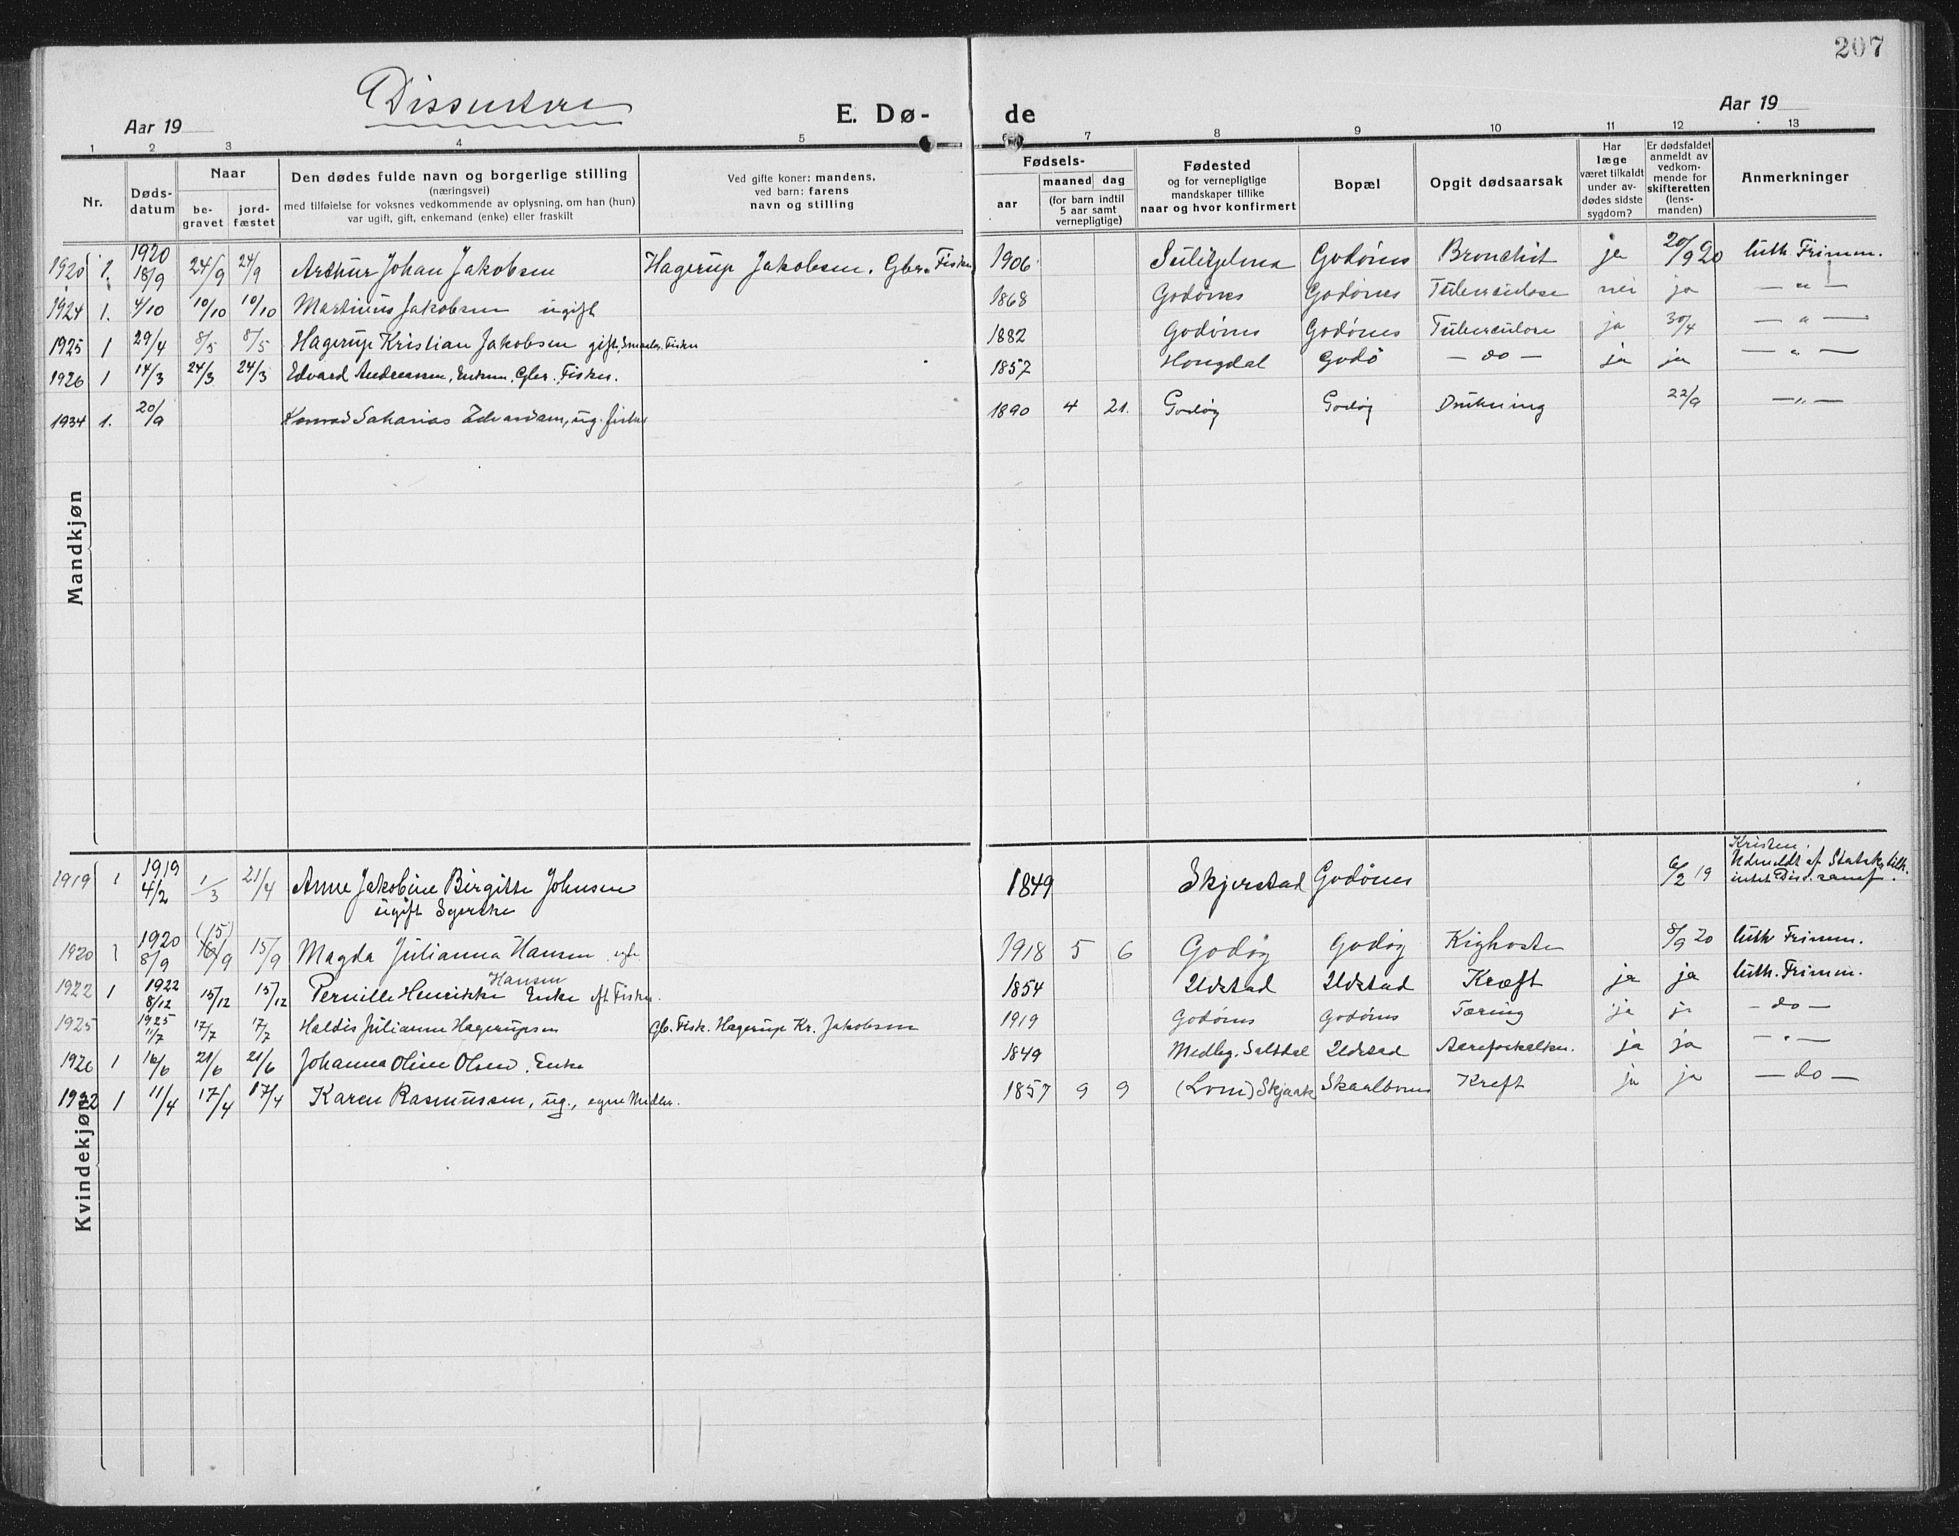 207
Dissentere
Aar 19
E. Dø-
de
Aar 19
1 2 3 4 5 6 7 8 9 10 11 12 13
Nr.
Døds-
datum
Naar
be-
gravet
jord-
fæstet
Den dødes fulde navn og borgerlige stilling
(næringsvei)
med tilføielse for voksnes vedkommende av oplysning, om han (hun)
var ugift, gift, enkemand (enke) eller fraskilt
Ved gifte koner: mandens,
ved barn: farens
navn og stilling
Fødsels-
aar
maaned
dag
(for barn indtil
5 aar samt
vernepligtige)
Fødested
og for vernepligtige
mandskaper tillike
naar og hvor konfirmert
Bopæl
Opgit dødsaarsak
Har
læge
været tilkaldt
under av-
dødes sidste
sygdom?
Er dødsfaldet
anmeldt av
vedkom-
mende for
skifteretten
(lens-
manden)
Anmerkninger
Mandkjøn
1920 1. 1920 18/9 24/9 24/9 Arthur Johan Jakobsen Hagerup Jakobsen. Gbr. Fisker 1906 Sulitjelma Godønes Bronchit ja 20/9 20 luth. Frimen.
1924 1. 4/10 10/10 10/10 Martinus Jakobsen ugift 1868 Godønes Godønes Tuberculose nei ja — " —
1925 1 29/4 8/5 8/5 Hagerup Kristian Jakobsen gift, Fisker 1882 Godønes Godønes Tuberculose ja 30/4 — " —
1926 1 14/3 24/3 24/3 Edvard Andreassen, Enkem. Gbr. Fisker. 1857 Hongdal Godø — do — ja ja — " —
1934 1. 20/9 Konrad Sakarias Edvardsen, ug. fisker 1890 4 21. Godøy Godøy Drukning 22/9 — " —
Kvindekjøn
1919 1 1919 4/2 1/3 21/4 Anne Jakobine Birgitte Johnsen 1849 Skjerstad Godønes 6/2 19 Kristen.
Udmeldt af Statsk. tilh.
intet Diss. samf.
ugift
1920 1 1920 8/9 (15) 16/9 15/9 Magda Julianna Hansen 1918 5 6 Godøy Godøy Kighoste 8/9 20 luth Frimen.
1922 1 1922 8/12 15/12 15/12 Pernille Henrikke Hansen Enke eft Fisker. 1854 Ildstad Ildstad Kræft ja ja luth. Frimen.
1925 1925 11/7 17/7 17/7 Haldis Julianne Hagerupsen Gb. Fisk. Hagerup Kr. Jakobsen 1919 Godønes Godønes Tæring ja ja — do —
1926 1 16/6 21/6 21/6 Johanna Oline Olsen. Enke 1849 Medby, Saltdal Ildstad Aareforkalkn. ja ja — " —
1932 1 11/4 17/4 17/4 Karen Rasmussen, ug., egne Midler. 1857 9 9 (Lom) Skjaak Skaalbones Kreft ja ja — do —